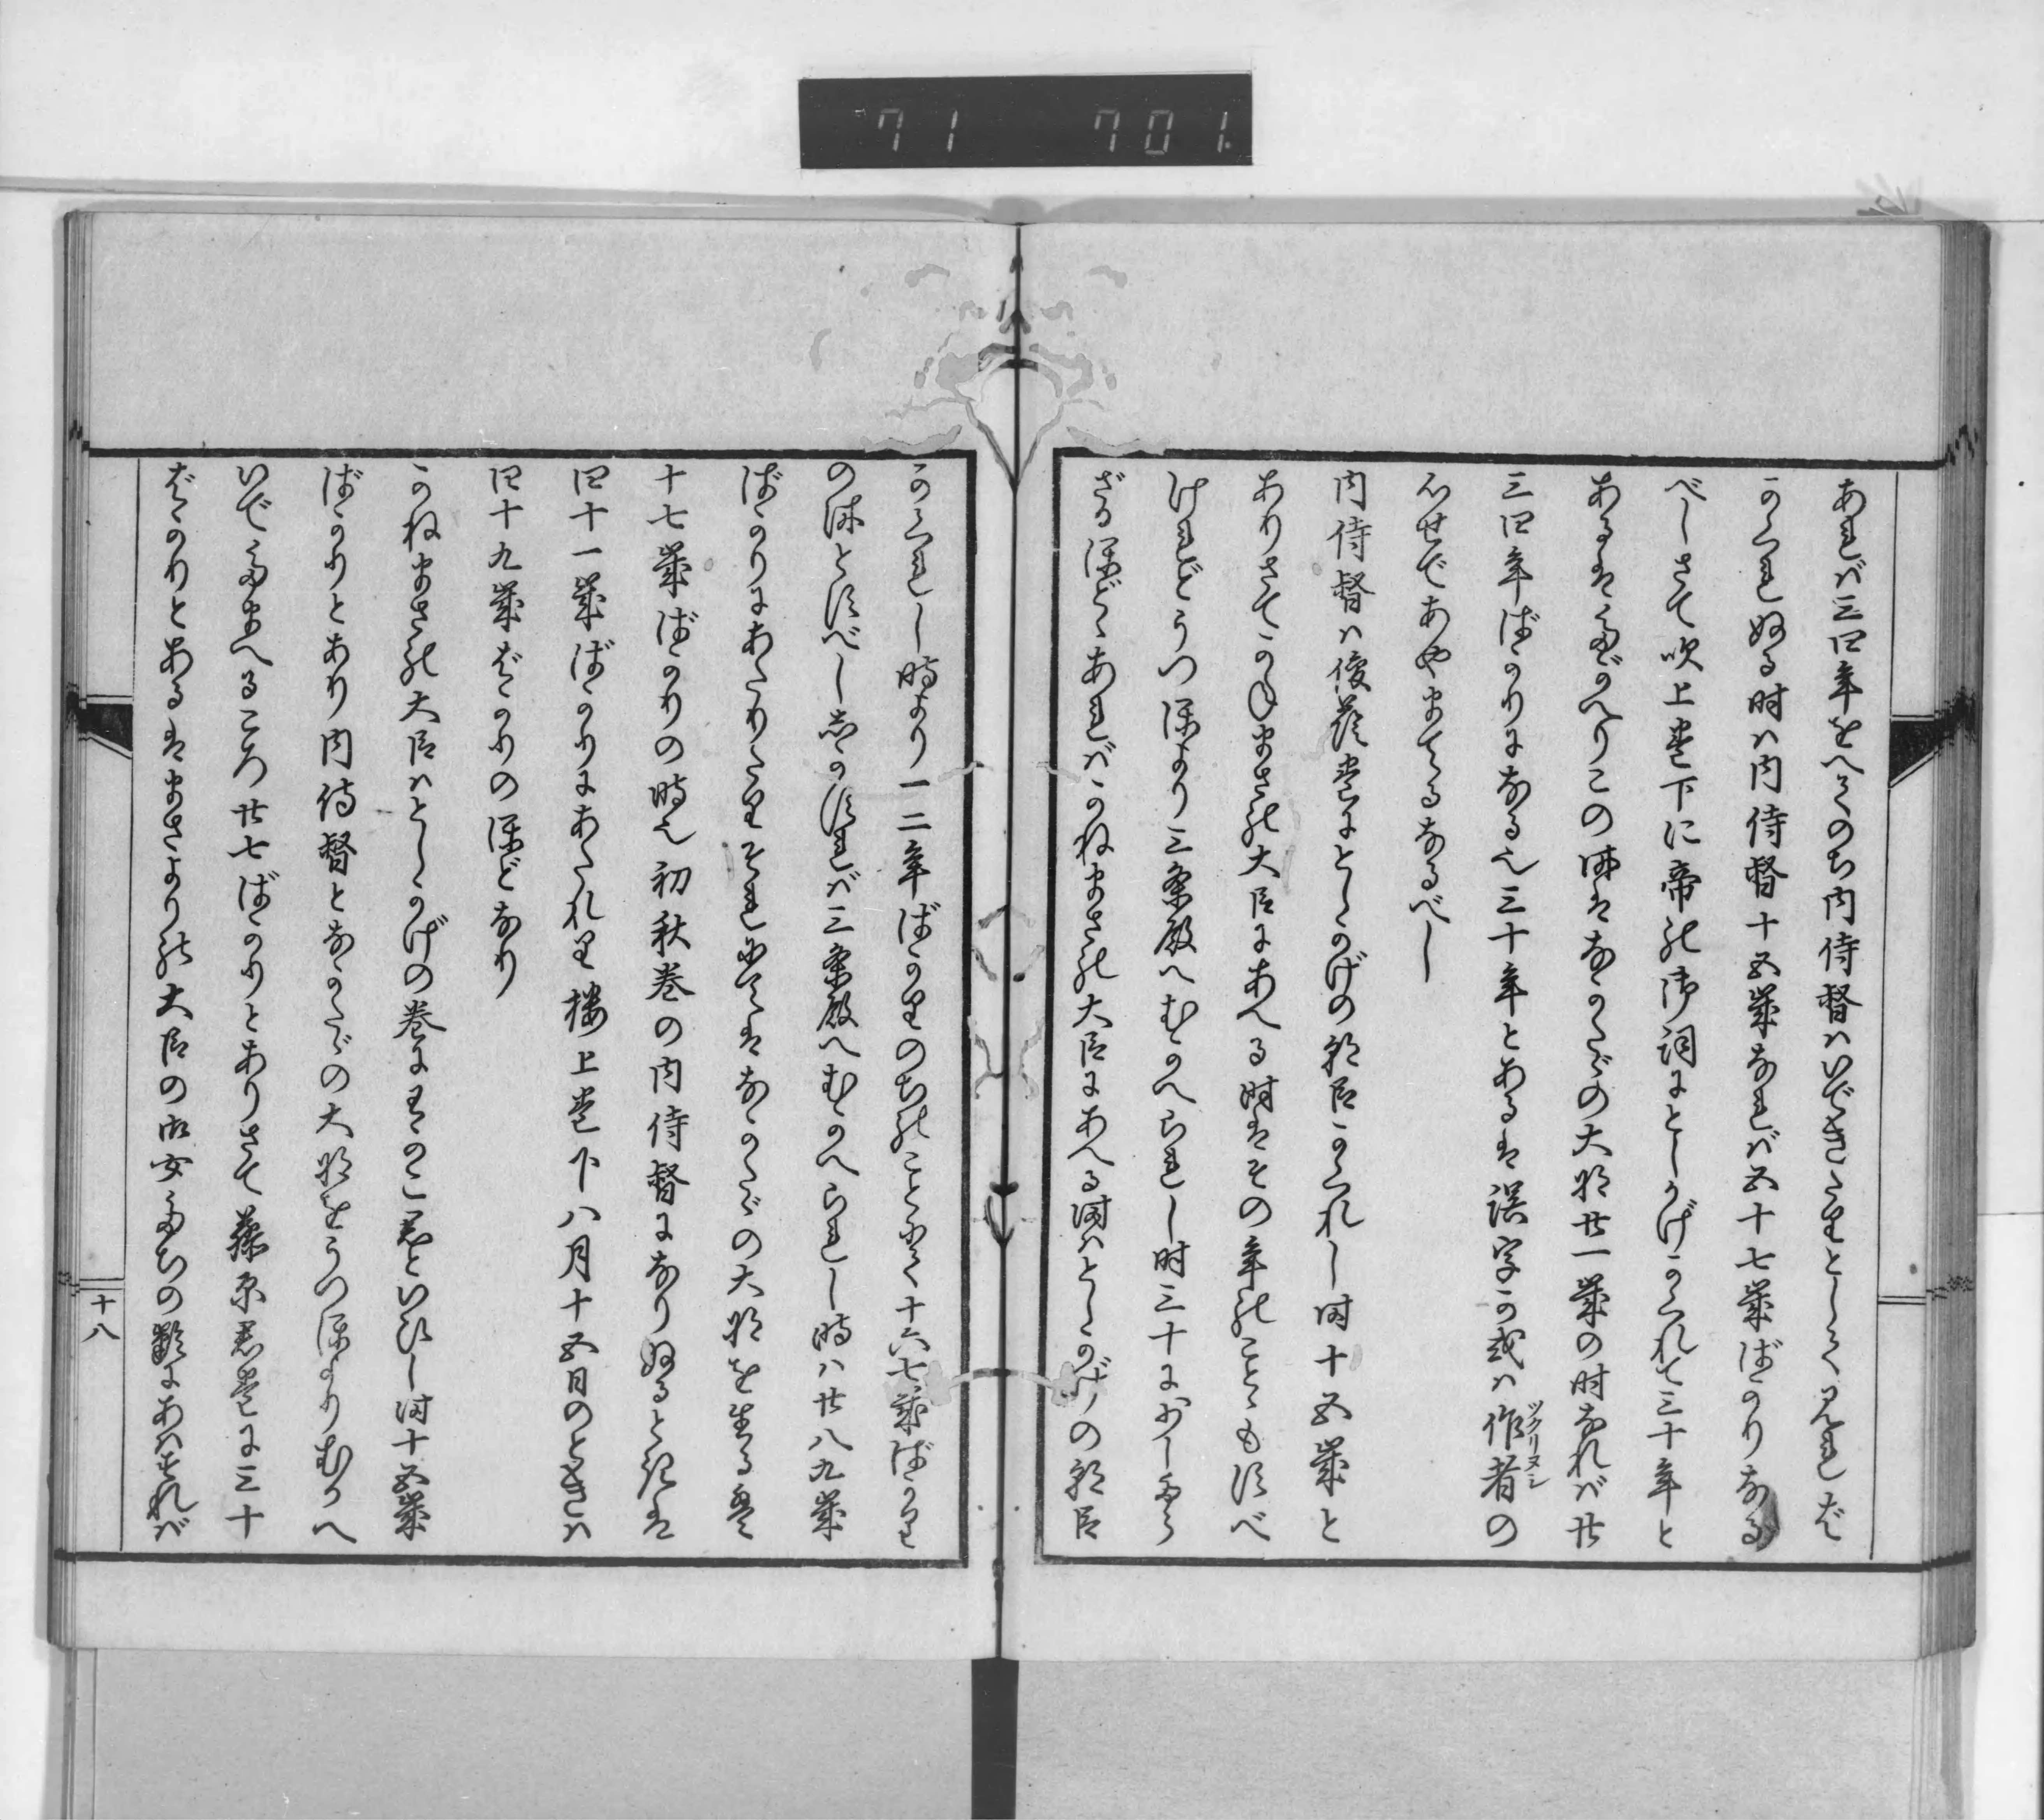 71 701.
あれバ三四年をへてのち内侍督ハいできたりとして見れば
かくれぬる時ハ内侍督十五歳なれバ五十七歳ばかりなる
べしさて吹上巻下に帝の御詞にとしかげかくれて三十年と
あるはたがへりこの時はなかたゞの大将廿一歳の時なれバ廿
三四年ばかりになる也三十年とあるは誤字か或ハ作者の
ツクリヌシ
心せであやまてるなるべし
内侍督ハ俊蔭巻にとしかげの朝臣かくれし時十五歳と
ありさてかねまさの大臣にあへる時はその年のことも浮べ
けれどうつほより三条殿へむかへられし時三十におしたら
ざるほどゝあれバかねまさの大臣にあへる時ハとしかげの朝臣
かくれし時より一二年ばかりのちのことにて十六七歳ばかり
の時とすべししかすれバ三条殿へむかへられし時ハ廿八九歳
ばかりにあたりたりそれにてはなかたゞの大将を生るは
十七歳ばかりの時也初秋巻の内侍督になりぬるときは
四十一歳ばかりにあたれり楼上巻下八月十五日のときハ
四十九歳ばかりのほどなり
かねまさの大臣ハとしかげの巻にわかこ君といひし時十五歳
ばかりとあり内侍督となかたゞの大将をうつほよりむかへ
いでたまへるころ廿七ばかりとありさて藤原君巻に三十
ばかりとあるはまさよりの大臣の御女たちの齢にあハすれバ
十八